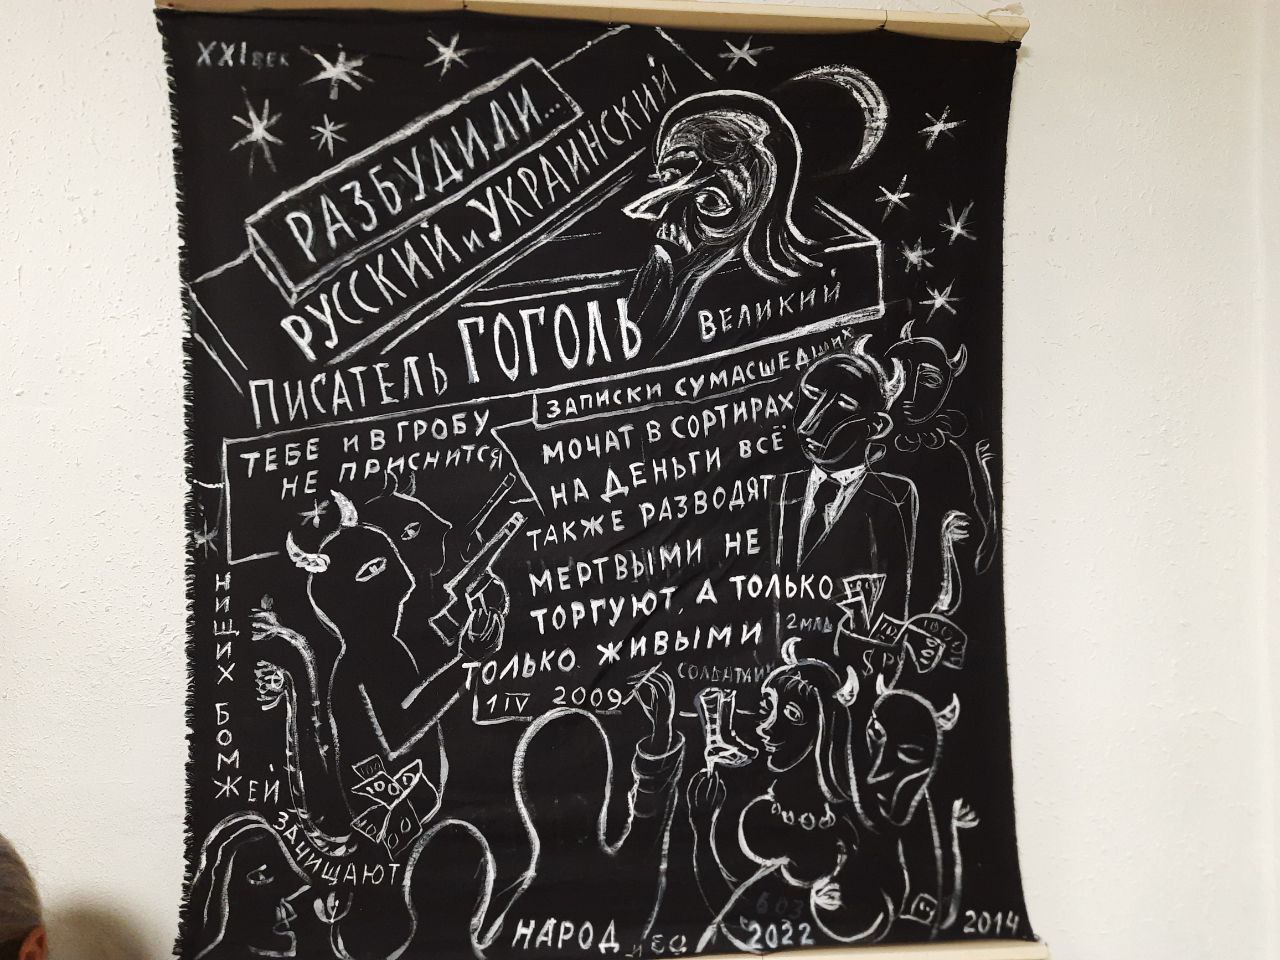 XXI ВЕК
РАЗБУДИЛИ...
РУССКИЙ и УКРАИНСКИЙ
ПИСАТЕЛЬ ГОГОЛЬ ВЕЛИКИЙ
ЗАПИСКИ СУМАСШЕДШИХ
ТЕБЕ И В ГРОБУ
НЕ ПРИСНИТСЯ
МОЧАТ В СОРТИРАХ
НА ДЕНЬГИ ВСЁ
ТАКЖЕ РАЗВОДЯТ
МЕРТВЫМИ НЕ
ТОРГУЮТ, А ТОЛЬКО
ТОЛЬКО ЖИВЫМИ
1 IV 2009
2 МЛД
$ РУ
100
1000
НИЩИХ БОМЖЕЙ
ЗАЧИЩАЮТ
НАРОД
2022
2014